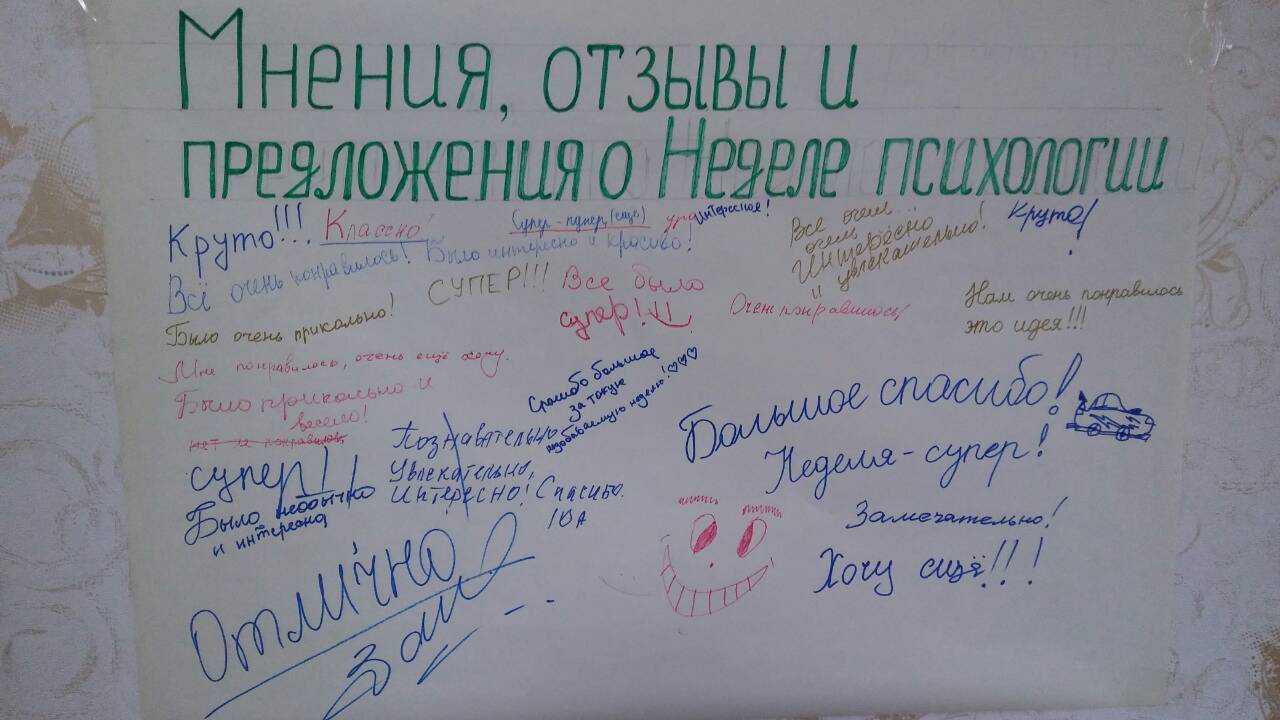 Мнения, отзывы и
предложения о Неделе психологии
Круто!!! Классно! Супер-пупер, (ещё) ура интересное!
Всё очень
очень
интересно
и увлекательно!
Круто!
Всё очень понравилось! Было интересно и красиво!
СУПЕР!!!
Все было
супер!
Очень понравилось!
Нам очень понравилось
это идея!!!
Было очень прикольно!
Мне понравилось, очень ещё хочу.
Было прикольно и
весело!
нет не понравилось
супер!!
Было необычно
и интересно
Познавательно
Увлекательно,
Интересно! Спасибо.
10А
Спасибо большое
за такую
неделю!
Большое спасибо!
Неделя-супер!
Замечательно!
Хочу ещё!!!
Отлично